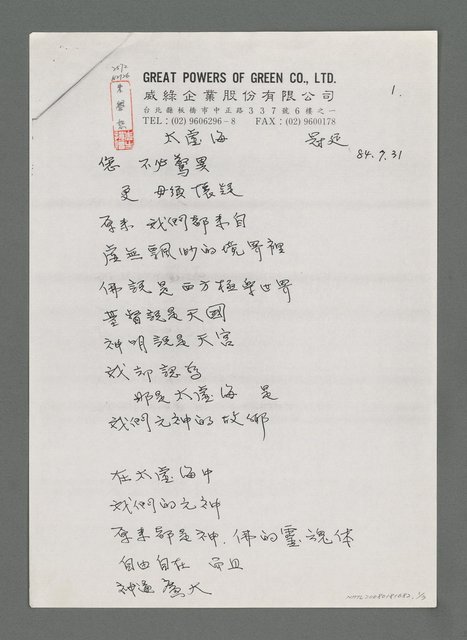 GREAT POWERS OF GREEN CO., LTD.
威綠企業股份有限公司
台北縣板橋市中正路337號6樓之一
TEL:(02) 9606296-8 FAX:(02) 9600178
1.
太虛海
84.7.31
您 不必驚異
更 毋須懷疑
原來 我們都來自
虛無飄渺的境界裡
佛說是西方極樂世界
基督說是天國
神明說是天宮
我卻認為
那是太虛海 是
我們元神的故鄉
在太虛海中
我們的元神
原來都是神、佛的靈魂体
自由自在 而且
神通廣大
NMTL20080181082, 1/3